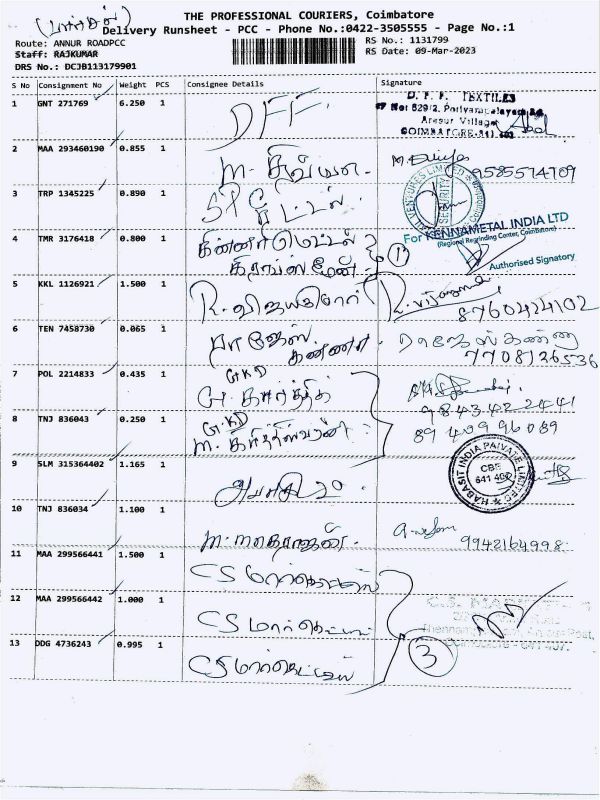 (பார்சல்)
THE PROFESSIONAL COURIERS, Coimbatore
Delivery Runsheet - PCC - Phone No.:0422-3505555 - Page No.:1
Route: ANNUR ROADPCC
RS No.: 1131799
Staff: RAJKUMAR
RS Date: 09-Mar-2023
DRS No.: DCJB113179901
S No Consignment No Weight PCS Consignee Details Signature
1 GNT 271769 6.250 1 DFF. D. F. F. TEXTILES
COIMBATORE-641
2 MAA 293460190 0.855 1 M. திவ்யா. 9585574709
3 TRP 1345225 0.890 1 SPC
VENTURES LIMITED
SECURITY
4 TMR 3176418 0.800 1 கின்னர் மெட்டல் 1 For KENNAMETAL INDIA LTD
(Regional Regrinding Center, Coimbatore)
Authorised Signatory
5 KKL 1126921 1.500 1 R. விஜயகுமார் 8760424102
6 TEN 7458730 0.065 1 ராஜேஸ் கண்ணா. ராஜேஸ் கண்ணா
7708126536
7 POL 2214833 0.435 1 GKD
G. கார்த்திக்
9843422441
8 TNJ 836043 0.250 1 GKD
8940996089
9 SLM 315364402 1.165 1 HABASIT INDIA PRIVATE LIMITED
CBE
641 402
10 TNJ 836034 1.100 1 9942164998
11 MAA 299566441 1.500 1 CS மார்கெட்டிங்
12 MAA 299566442 1.000 1 CS மார்கெட்டிங்
13 DDG 4736243 0.995 1 CS மார்கெட்டிங் 3